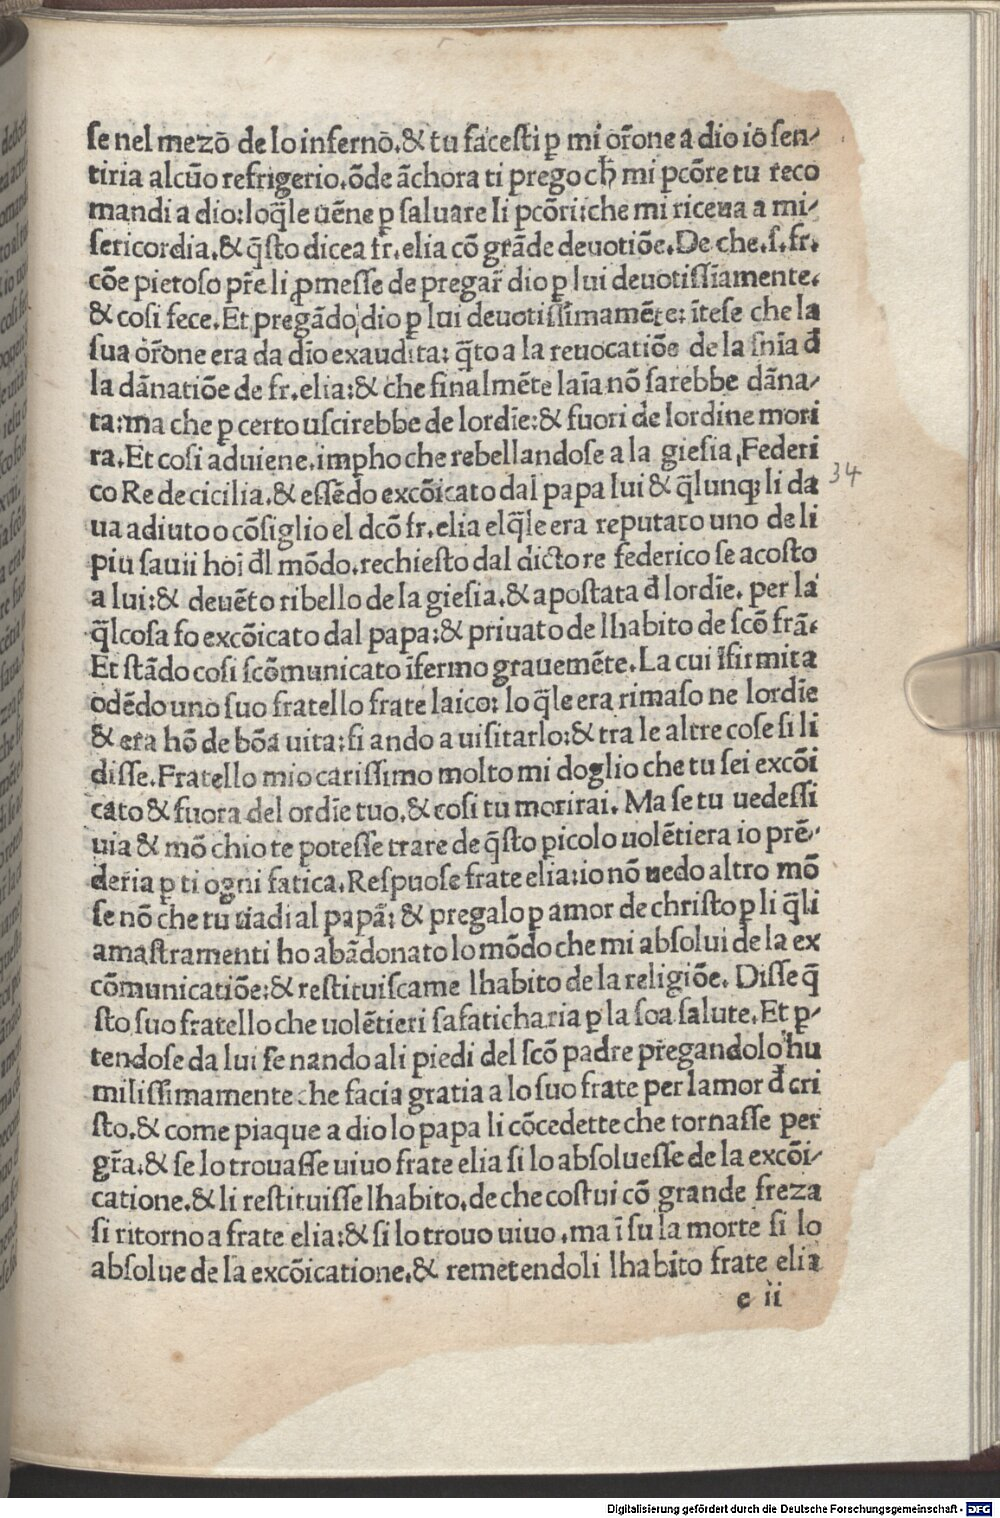 se nel mezō de lo infernō.& tu facesti ꝑ mi or̄one a dio iō sen⸗
tiria alcūo refrigerio.ōde āchora ti prego ch̄ mi pcōre tu reco
mandi a dio:loq̄le uēne ꝑ saluare li pcōri:che mi riceua a mi⸗
sericordia.& q̄sto dicea fr̄.elia cō grāde deuotiōe.De che.s.fr.
cōe pietoso pr̄e li ꝓmesse de pregar̄ dio ꝑ lui deuotissīamente.
& cosi fece.Et pregādo dio ꝑ lui deuotissimamēte: ītese che la
sua or̄one era da dio exaudita: q̄to a la reuocatiōe de la snīa đ
la dānatiōe de fr.elia:& che finalmēte laīa nō sarebbe dāna⸗
ta:ma che ꝑ certo uscirebbe de lordīe:& fuori de lordine mori
ra.Et cosi aduiene.impho che rebellandose a la giesia Federi
co Re de cicilia.& essēdo excōicato dal papa lui & q̄lunqꝫ li da
ua adiuto o cōsiglio el dcō fr.elia elq̄le era reputato uno de li
piu sauii hoī đl mōdo.rechiesto dal dicto re federico se acosto
a lui:& deuēto ribello de la giesia.& apostata đ lordīe. per la
q̄lcosa fo excōicato dal papa:& priuato de lhabito de scō frā.
Et stādo cosi scōmunicato īfermo grauemēte.La cui īfirmita
odēdo uno suo fratello frate laico: lo q̄le era rimaso ne lordīe
& era hō de bōa uita:si ando a uisitarlo:& tra le altre cose si li
disse.Fratello mio carissimo molto mi doglio che tu sei excōi
cato & fuora del ordīe tuo.& cosi tu morirai. Ma se tu uedessi
uia & mō chio te potesse trare de q̄sto picolo uolētiera io prē⸗
deria ꝑ ti ogni fatica.Respuose frate elia:io nō uedo altro mō
se nō che tu uadi al papa: & pregalo ꝑ amor de christo ꝑ li q̄li
amastramenti ho abādonato lo mōdo che mi absolui de la ex
cōmunicatiōe:& restituiscame lhabito de la religiōe. Disse q̄
sto suo fratello che uolētieri safaticharia ꝑ la soa salute.Et ꝑ⸗
tendose da lui se nando ali piedi del scō padre pregandolo hu
milissimamente che facia gratia a lo suo frate per lamor đ cri
sto.& come piaque a dio lo papa li cōcedette che tornasse per
gr̄a.& se lo trouasse uiuo frate elia si lo absoluesse de la excōi⸗
catione.& li restituisse lhabito.de che costui cō grande freza
si ritorno a frate elia:& si lo trouo uiuo .ma ī su la morte si lo
absolue de la excōicatione.& remetendoli lhabito frate elia
e ii
34
Digitalisierung gefördert durch die Deutsche Forschungsgemeinschaft - DFG